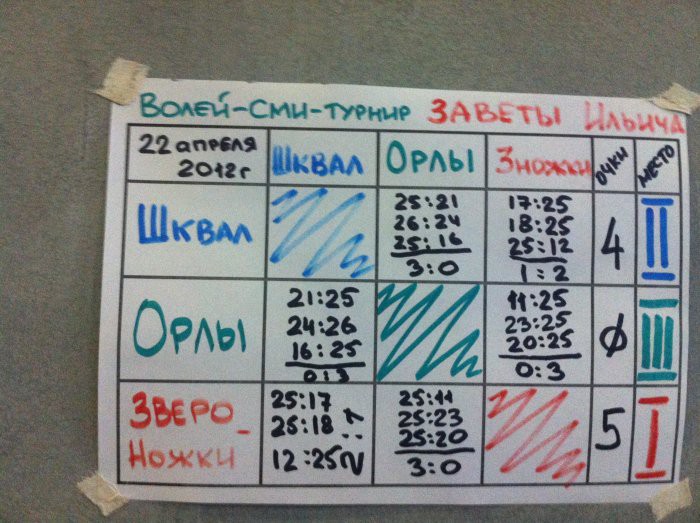 Волей-СМИ-турнир Заветы Ильича
22 апреля 2012г Шквал Орлы Зножки очки место
Шквал 25:21 17:25 4 II
26:24 18:25
25:16 25:12
3:0 1:2
Орлы 21:25 11:25 0 III
24:26 23:25
16:25 20:25
0:3 0:3
Зверо_ 25:17 25:11 5 I
Ножки 25:18 25:23
12:25 25:20
2:1 3:0